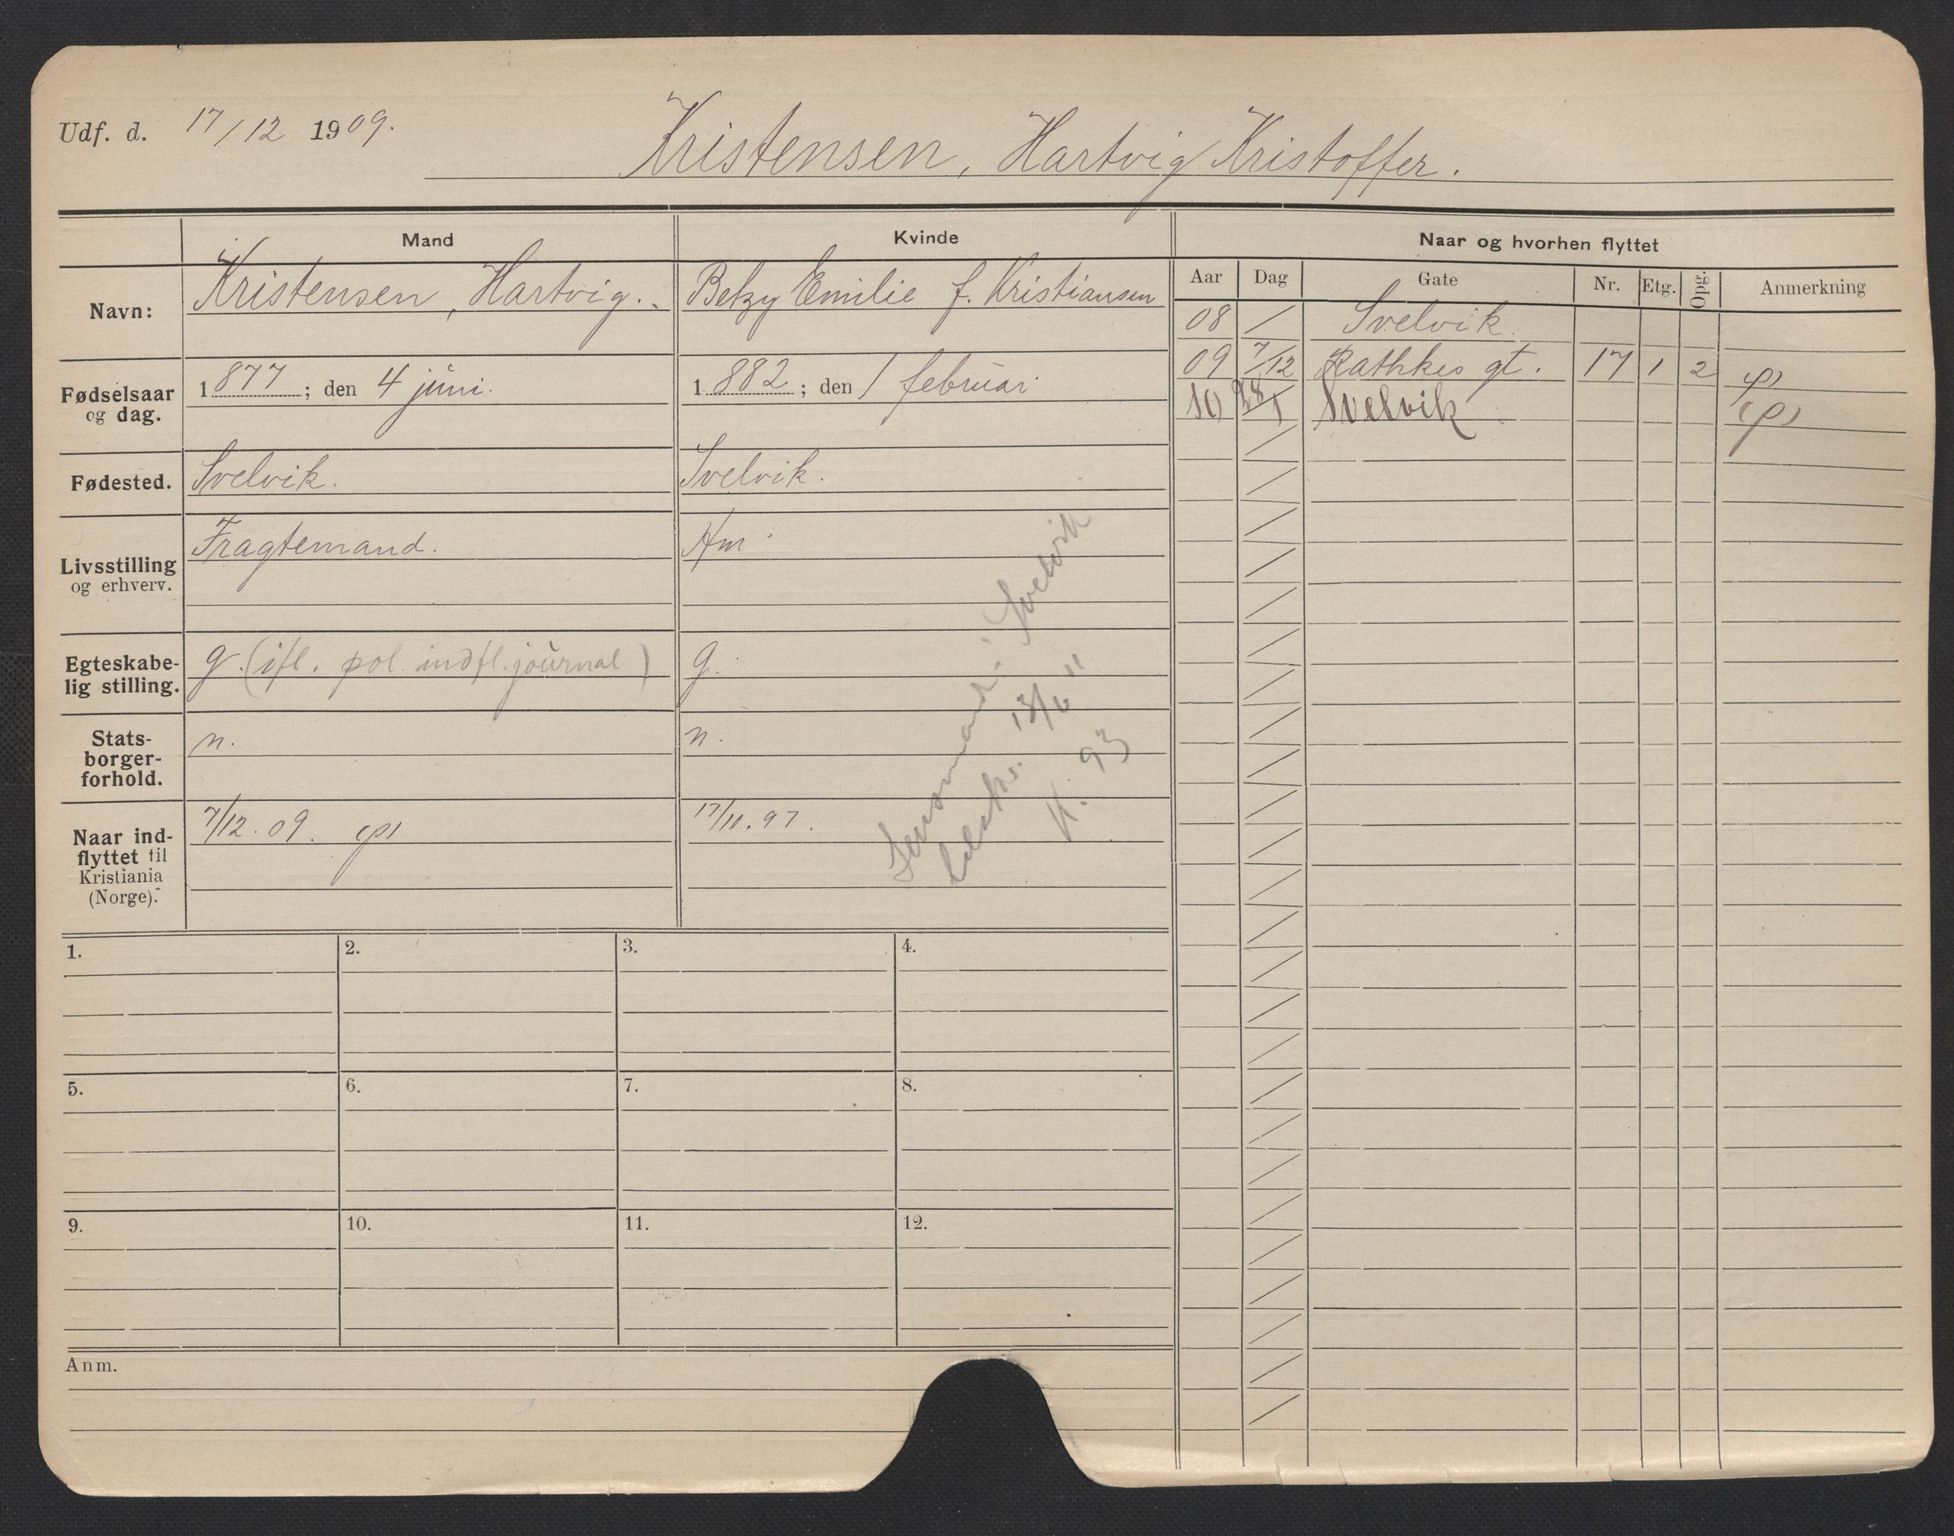 Udf. d. 17/12 1909.
Kristensen, Hartvig Kristoffer.
Mand Kvinde Naar og hvorhen flyttet
Navn: Kristensen, Hartvig. Betzy Emilie f. Kristiansen
Fødselsaar og dag. 1877; den 4 juni. 1882; den 1 februar
Fødested. Svelvik. Svelvik.
Livsstilling og erhverv. Fragtemand. Hm
Egteskabe-
lig stilling. g. (ifl. pol. indfl. journal) g.
Stats-
borger-
forhold. n. n.
Naar ind-
flyttet til
Kristiania
(Norge). 7/12. 09. (p) 17/10. 97.
i Svelvik
13/6 11
K. 93
Aar Dag Gate Nr. Etg. Opg. Anmerkning
08 / Svelvik.
09 7/12 Rathkes gt. 17 1 2 (p)
10 28/1 Svelvik (p)
1. 2. 3. 4.
5. 6. 7. 8.
9. 10. 11. 12.
Anm.